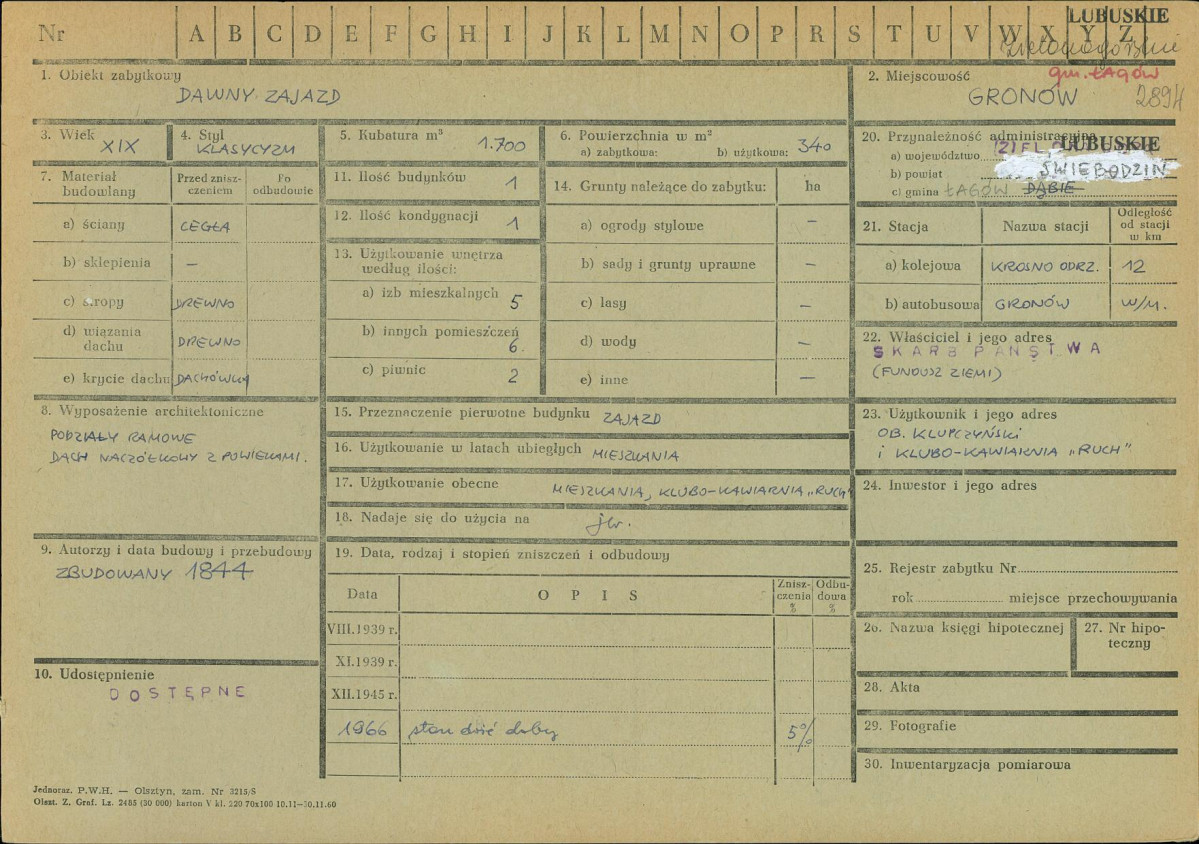 Nr A B C D E F G H I J K L M N O P R S T U V W X Y Z
LUBUSKIE
zielonogórskie
gm. ŁAGÓW
2894
1. Obiekt zabytkowy
DAWNY ZAJAZD
2. Miejscowość
GRONÓW
3. Wiek
XIX
4. Styl
KLASYCYZM
5. Kubatura m³
1.700
6. Powierzchnia w m²
a) zabytkowa: b) użytkowa: 340
7. Materiał budowlany
Przed zniszczeniem
Po odbudowie
a) ściany CEGŁA
b) sklepienia —
c) stropy DREWNO
d) wiązania dachu DREWNO
e) krycie dachu DACHÓWKA
8. Wyposażenie architektoniczne
PODZIAŁY RAMOWE
DACH NACZÓŁKOWY Z POWIEKAMI.
9. Autorzy i data budowy i przebudowy
ZBUDOWANY 1844
10. Udostępnienie
DOSTĘPNE
11. Ilość budynków 1
12. Ilość kondygnacji 1
13. Użytkowanie wnętrza według ilości:
a) izb mieszkalnych 5
b) innych pomieszczeń 6.
c) piwnic 2
14. Grunty należące do zabytku: ha
a) ogrody stylowe —
b) sady i grunty uprawne —
c) lasy —
d) wody —
e) inne —
15. Przeznaczenie pierwotne budynku ZAJAZD
16. Użytkowanie w latach ubiegłych MIESZKANIA
17. Użytkowanie obecne MIESZKANIA, KLUBO-KAWIARNIA „RUCH"
18. Nadaje się do użycia na jw.
19. Data, rodzaj i stopień zniszczeń i odbudowy
Data OPIS Zniszczenia % Odbudowa %
VIII.1939 r.
XI.1939 r.
XII.1945 r.
1966 stan dość dobry 5%
20. Przynależność administracyjna
a) województwo LUBUSKIE
b) powiat ŚWIEBODZIN
c) gmina ŁAGÓW DĄBIE
21. Stacja Nazwa stacji Odległość od stacji w km
a) kolejowa KROSNO ODRZ. 12
b) autobusowa GRONÓW W/M.
22. Właściciel i jego adres
SKARB PAŃSTWA
(FUNDUSZ ZIEMI)
23. Użytkownik i jego adres
OB. KLUPCZYŃSKI
i KLUBO-KAWIARNIA „RUCH"
24. Inwestor i jego adres
25. Rejestr zabytku Nr
rok miejsce przechowywania
26. Nazwa księgi hipotecznej
27. Nr hipoteczny
28. Akta
29. Fotografie
30. Inwentaryzacja pomiarowa
Jednoraz. P.W.H. — Olsztyn, zam. Nr 3215/S
Olszt. Z. Graf. Lz. 2485 (30 000) karton V kl. 220 70x100 10.11—30.11.60